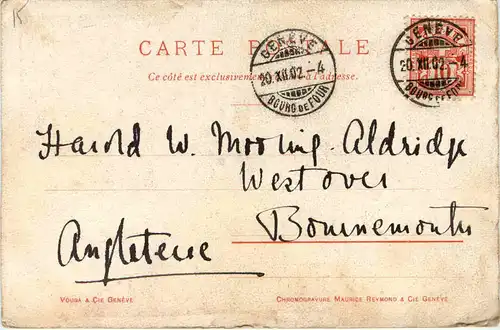 15
CARTE POSTALE
Ce côté est exclusivement à l'adresse.
GENÈVE
20.XII.02.-4
BOURG DE FOUR
GENÈVE
20.XII.02.-4
BOURG DE FOUR
10
Harold W. Mooring-Aldridge
Westover
Bournemouth
Angleterre
VOUGA & CIE GENÈVE
CHROMOGRAVURE MAURICE REYMOND & CIE GENÈVE